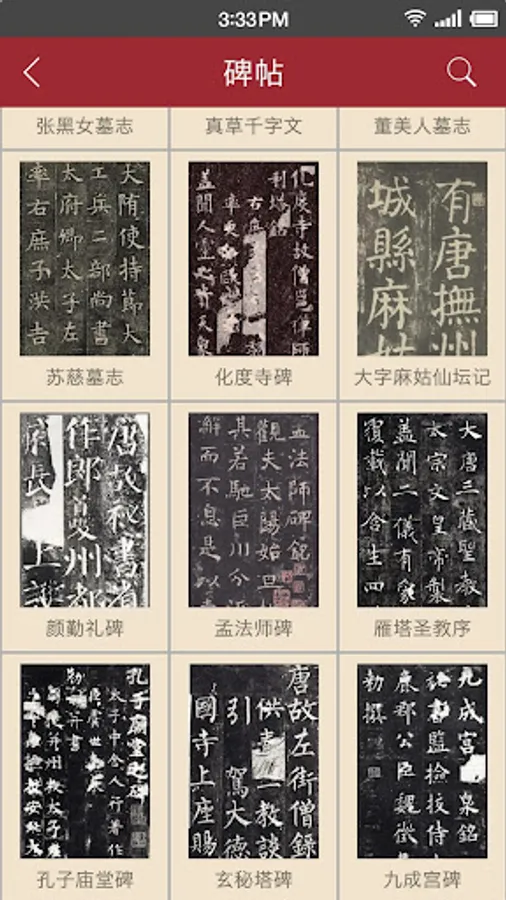 3:33PM
碑帖
张黑女墓志
真草千字文
董美人墓志
大隋使持節大
工兵二部尚書
太府卿太子左
率右庶子洪吉
化度寺故僧邕
有唐撫州
城縣麻姑
苏慈墓志
化度寺碑
大字麻姑仙坛记
唐故秘書省
作郎
州都
長上護
孟法師碑銘
觀夫太陽始旦
其若馳巨川分
辭而不息是以
大唐三藏聖教
太宗文皇帝製
蓋聞二儀有象
覆載以含生四
颜勤礼碑
孟法师碑
雁塔圣教序
孔子廟堂之碑
太子中舍人行著作
唐故左街僧錄
供奉
一教談
引
駕大德
國寺上座賜
九成宮
泉銘
祕書監檢校侍
鹿郡公臣魏徵
勅撰
孔子庙堂碑
玄秘塔碑
九成宫碑